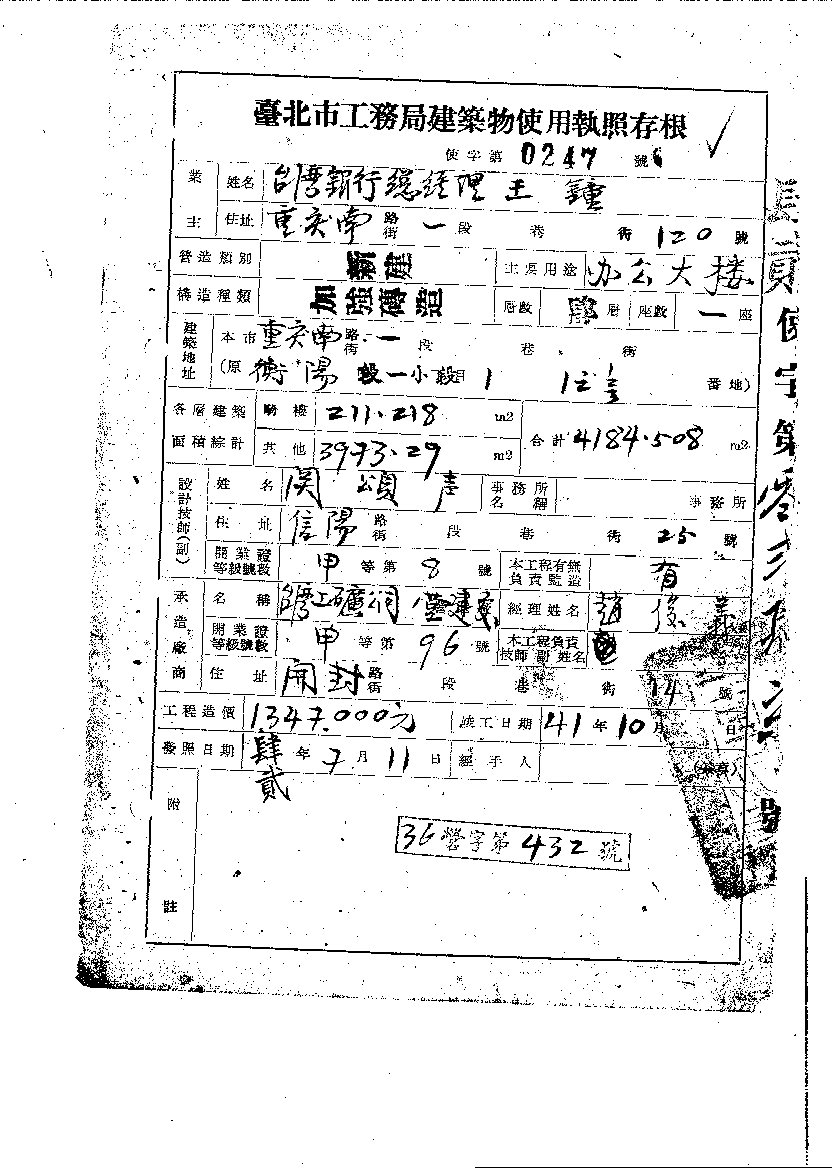 臺北市工務局建築物使用執照存根
使字第 0247 號
業主 姓名 台灣銀行總經理王 鍾
住址 重慶南 路街 一 段 巷 街 120 號
營造類別 新建 主要用途 办公大楼
構造種類 加強磚造 層數 層 座數 一 座
建築地址 本市 重慶南 路街 一 段 巷 街
(原 衡陽 段一小段 1 番地)
各層建築面積綜計 騎樓 211.218 m2 合計 4184.508 m2
其他 3973.29 m2
設計技師(副) 姓名 関頌声 事務所名稱 事務所
住址 信陽 路街 段 巷 街 25 號
開業證等級號數 甲 等第 8 號 本工程有無負責監造 有
承造廠商 名稱 台灣工礦公司 經理姓名 趙俊義
開業證等級號數 甲 等第 96 號 本工程負責技師副姓名
住址 開封 路街 段 巷 街 14 號
工程造價 1347.000元 竣工日期 41 年 10 月 日
發照日期 肆貳 年 7 月 11 日 經手人
附註
36營字第432號
使字第零
號